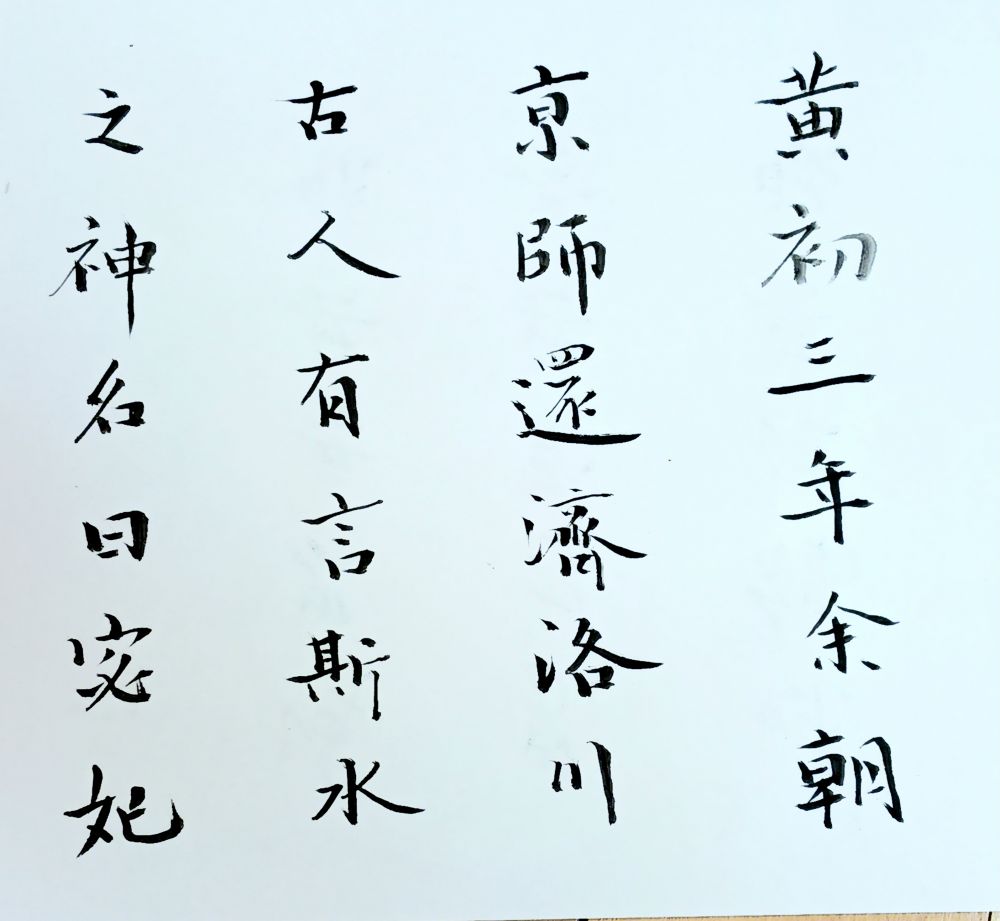 黄初三年余朝
京師還濟洛川
古人有言斯水
之神名曰宓妃